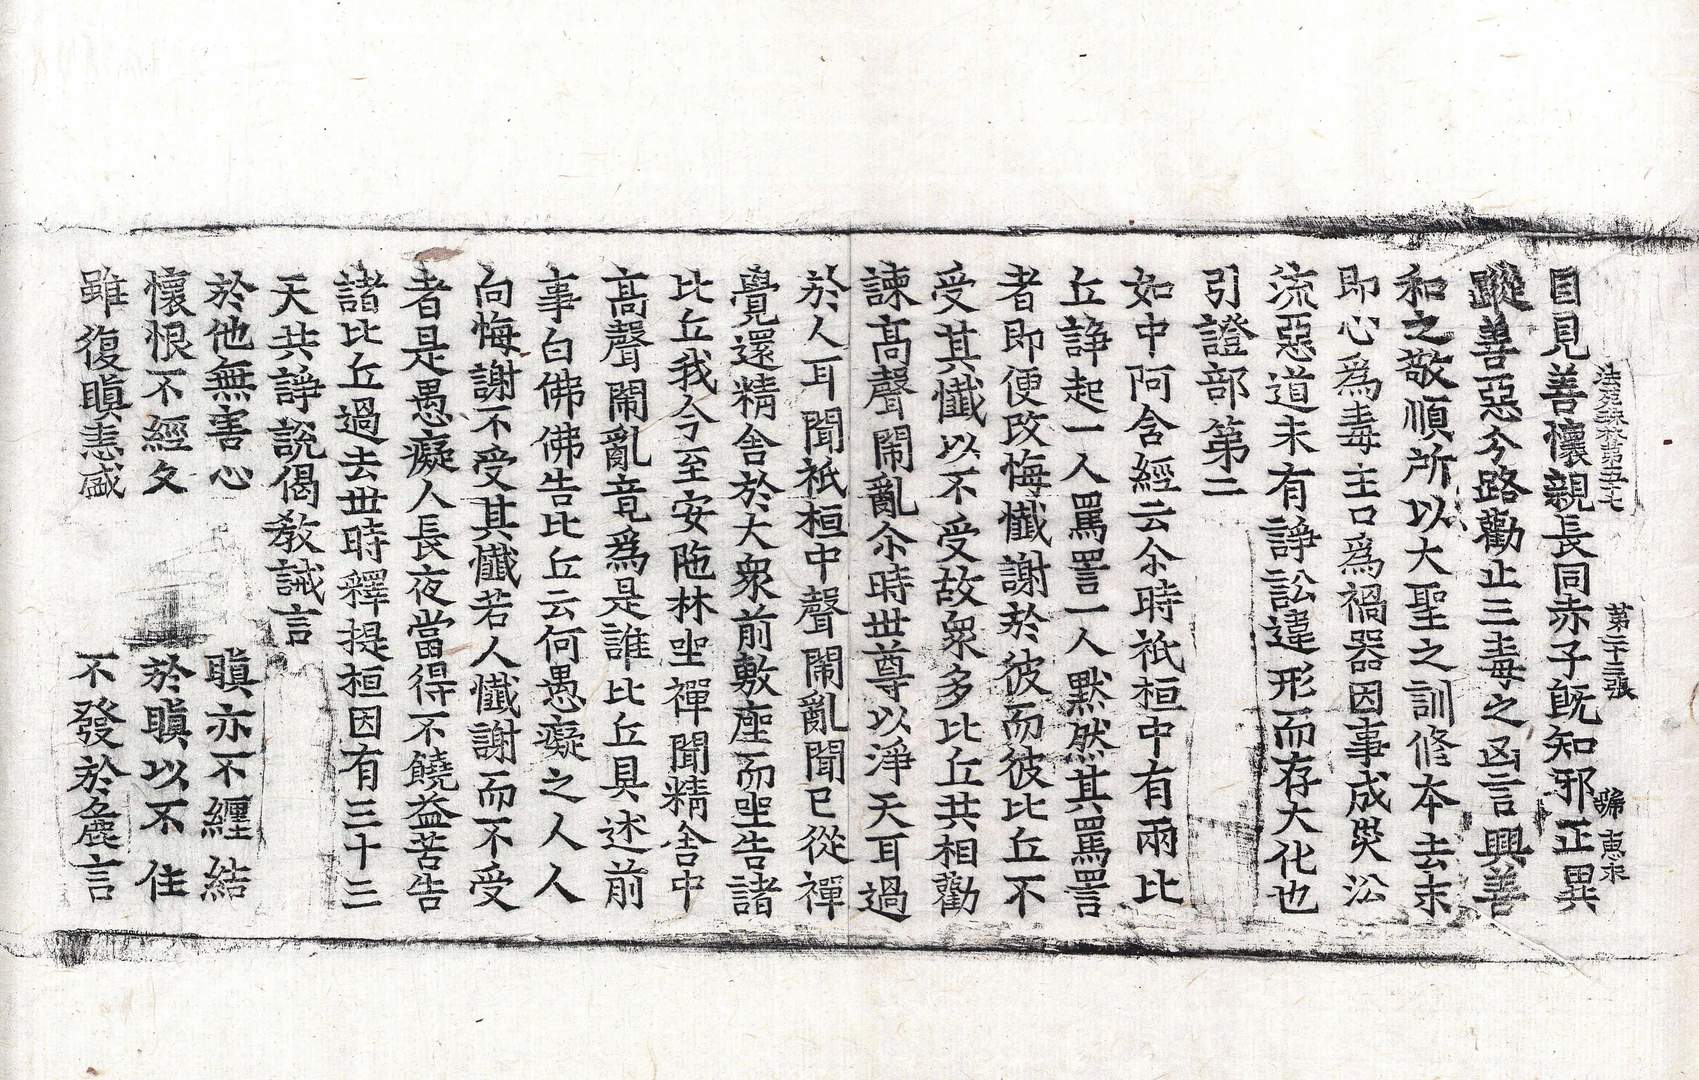 法苑珠林第五十七 第二十三張 歸 惠永
目見善懷親長同赤子旣知邪正異
蹤善惡今路勸止三毒之凶言興善
和之敬順所以大聖之訓修本去末
即心爲毒主口爲禍器因事成災訟
流惡道未有諍訟違形而存大化也
引證部第二
如中阿含經云尒時祇桓中有兩比
丘諍起一人罵詈一人默然其罵詈
者即便改悔懺謝於彼而彼比丘不
受其懺以不受故衆多比丘共相勸
諫高聲鬧亂尒時世尊以淨天耳過
於人耳聞祇桓中聲鬧亂聞已從禪
覺還精舍於大衆前敷座而坐告諸
比丘我今至安陁林坐禪聞精舍中
高聲鬧亂竟爲是誰比丘具述前
事白佛佛告比丘云何愚癡之人人
向悔謝不受其懺若人懺謝而不受
者是愚癡人長夜當得不饒益苦告
諸比丘過去世時釋提桓因有三十三
天共諍說偈教誡言
於他無害心 瞋亦不纏結
懷恨不經久 於瞋以不住
雖復瞋恚盛 不發於麁言